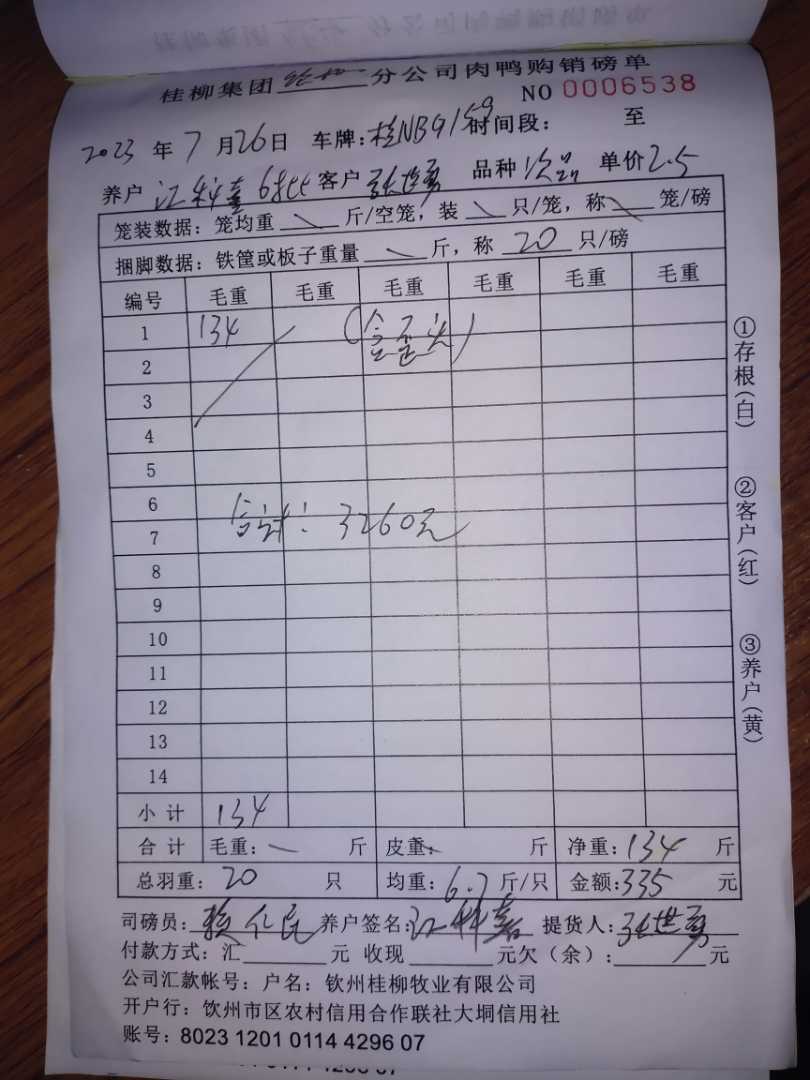 桂柳集团 分公司肉鸭购销磅单
NO 0006538
2023 年 7 月 26 日 车牌:桂NB9159 时间段: 至
养户 江 6批 客户 张世勇 品种 次品 单价 2.5
笼装数据:笼均重 斤/空笼,装 只/笼,称 笼/磅
捆脚数据:铁筐或板子重量 斤,称 20 只/磅
编号 毛重 毛重 毛重 毛重 毛重 毛重
1 134 (含歪头)
2
3
4
5
6
7 合计:3260元
8
9
10
11
12
13
14
小计 134
合计 毛重: 斤 皮重: 斤 净重:134 斤
总羽重:20 只 均重:6.7 斤/只 金额:335 元
司磅员:赖仁民 养户签名:江 提货人:张世勇
付款方式:汇 元 收现 元欠(余): 元
公司汇款帐号:户名:钦州桂柳牧业有限公司
开户行:钦州市区农村信用合作联社大垌信用社
账号:8023 1201 0114 4296 07
①存根(白)
②客户(红)
③养户(黄)